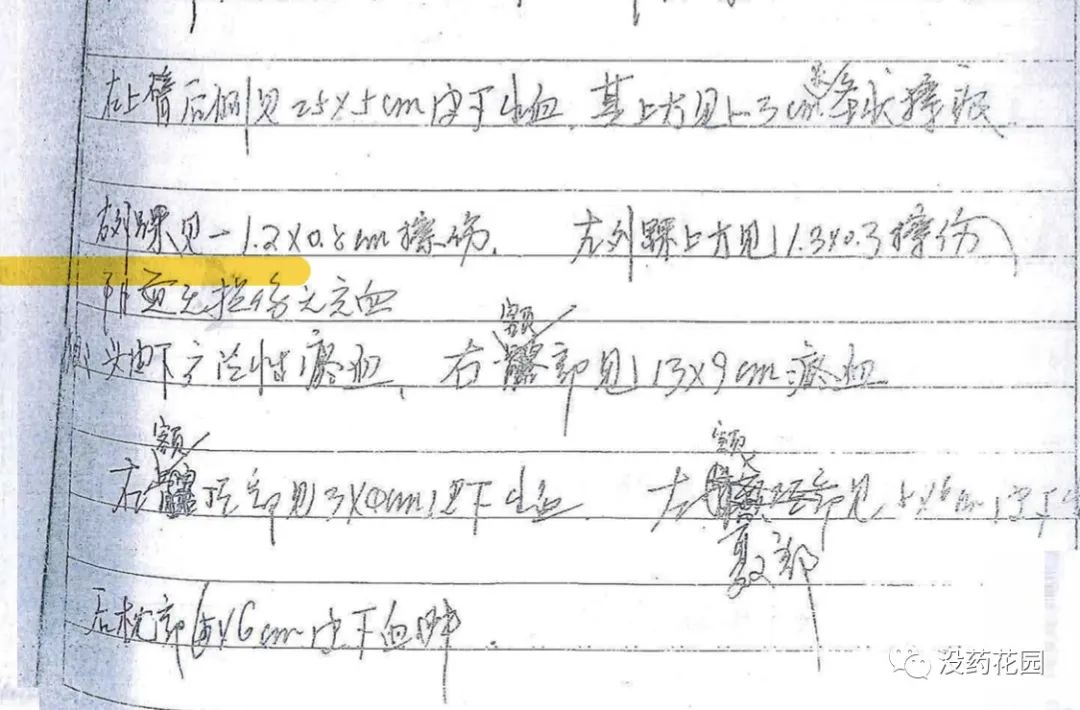 左上臂后侧见25×5cm皮下出血,其上方见一3cm条状擦痕
右外踝见一1.2×0.8cm擦伤, 左外踝上方见1.3×0.3擦伤
无损伤无充血
头皮下广泛性瘀血, 右额部见13×9cm瘀血
右额顶部见3×4cm皮下出血 左额部见5×6cm皮下
颞部
后枕部5×6cm皮下血肿.
没药花园